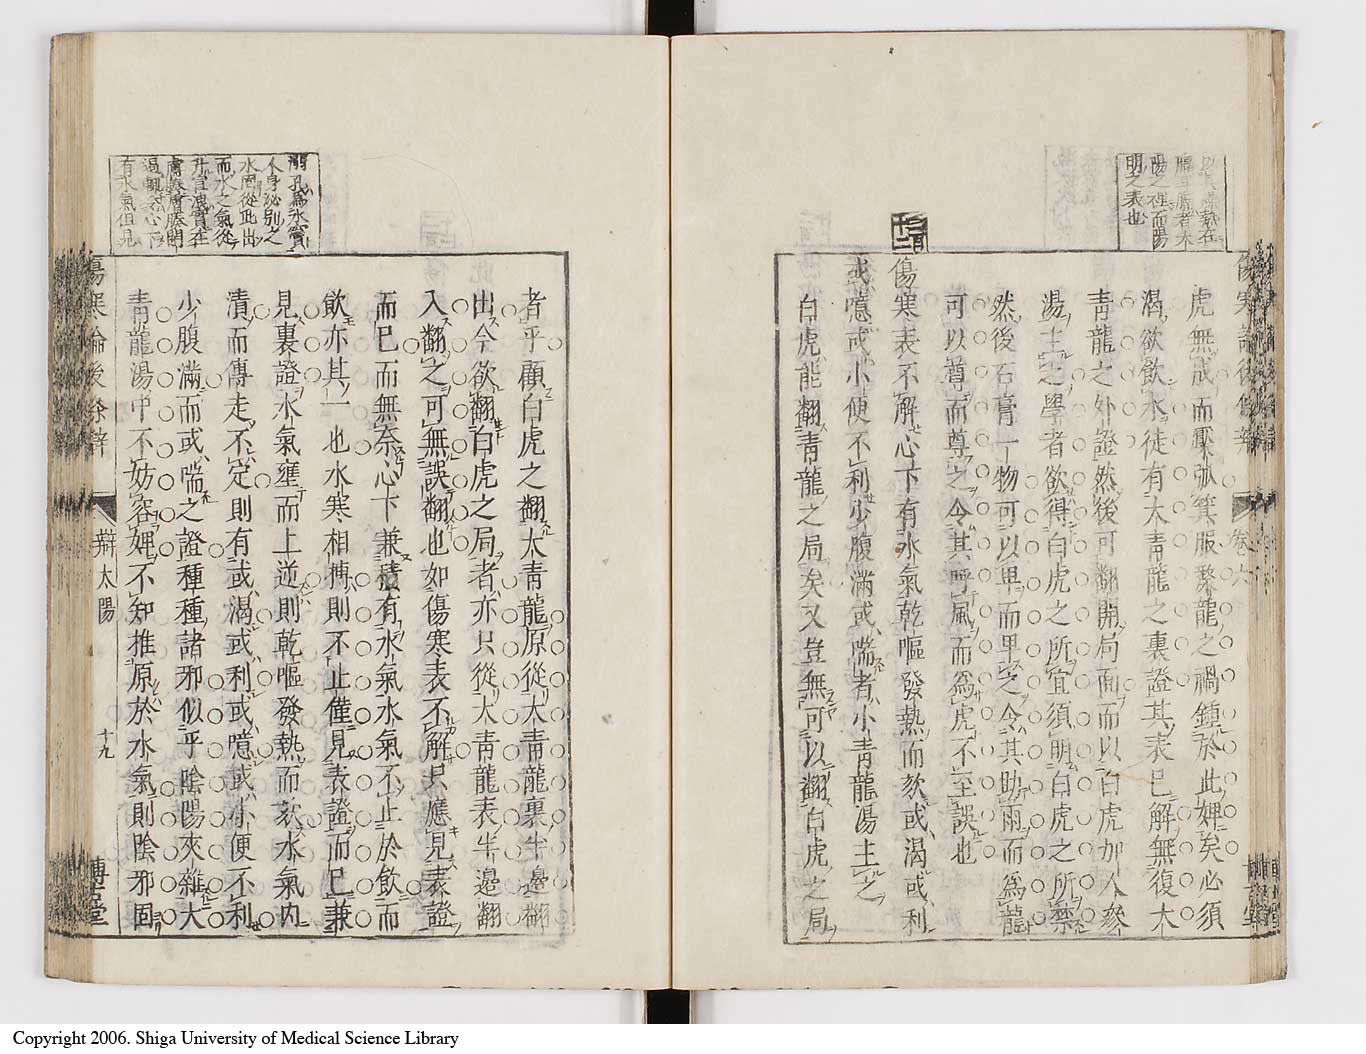 明之表也
陽之裡而陽
虎無戒而壓弧箕服漦龍之禍鍾於此婢矣必須
渴欲飲水徒有大青龍之裏證其表已解無復大
青龍之外證然後可翻開局面而以白虎加人參
湯主之學者欲得白虎之所宜須明白虎之所禁
然後石膏一物可以卑而卑之令其助雨而為龍
可以尊而尊之令其呼風而為虎不至誤也
傷寒表不解心下有水氣乾嘔發熱而欬或渴或利
或噫或小便不利少腹滿或喘者小青龍湯主之
白虎能翻青龍之局矣又豈無可以翻白虎之局
卷六
溺孔為水竇
人身泌別之
水固從此出
而水之氣從
有水氣但見
者乎顧白虎之翻大青龍原從大青龍裏半邊翻
出今欲翻白虎之局者亦只從大青龍表半邊翻
入翻之可無誤翻也如傷寒表不解只應見表證
而已而無奈心下兼積有水氣水氣不止於飲而
飲亦其一也水寒相搏則不止僅見表證而已兼
見裏證水氣壅而上逆則乾嘔發熱而欬水氣內
漬而傳走不定則有或渴或利或噫或小便不利
少腹滿而或喘之證種種諸邪似乎陰陽夾雜大
青龍湯中不妨容婢不知推原於水氣則陰邪固
傷寒論後條辨
辯太陽
十九
Copyright 2006. Shiga University of Medical Science Library